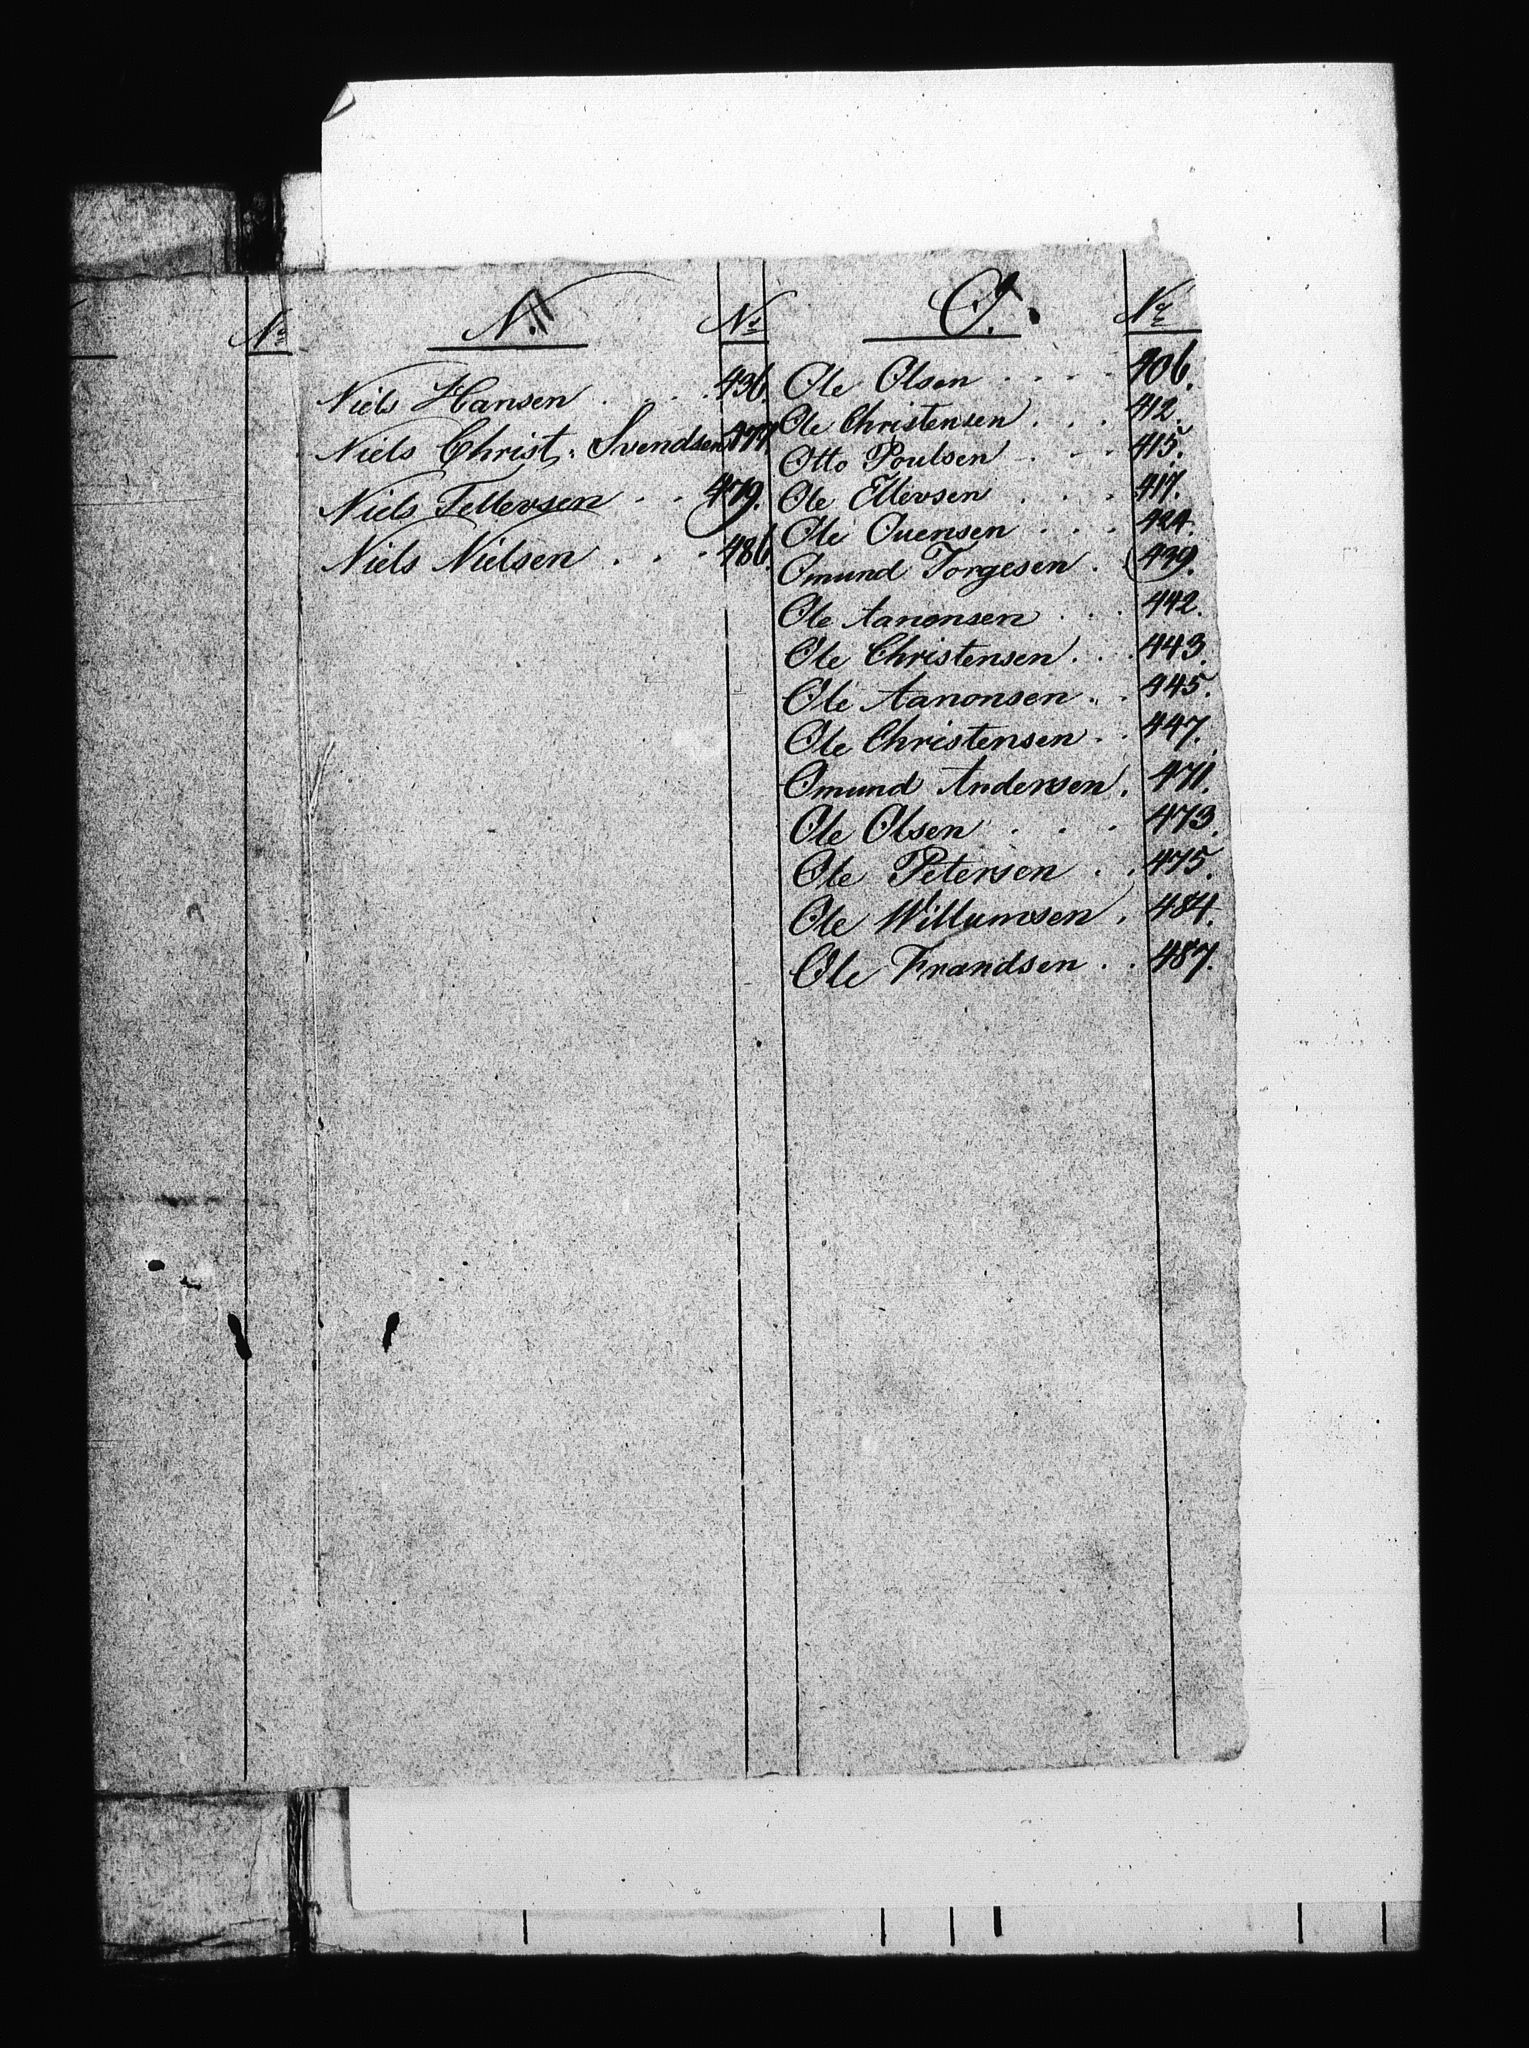 No
N. No
Niels Hansen . . . . 436.
Niels Christ. Svendsen 477
Niels Tellevsen . . 479.
Niels Nielsen . . . 486.
O. No
Ole Olsen . . . . 406.
Ole Christensen . . . 412.
Otto Poulsen . . . 415.
Ole Ellevsen . . . 417.
Ole Ouensen . . . 424.
Omund Torgesen . . 439.
Ole Aanonsen . . . 442.
Ole Christensen . . . 443.
Ole Aanonsen . . 445.
Ole Christensen . . 447.
Omund Andersen . 471.
Ole Olsen . . . 473.
Ole Petersen . . 475.
Ole Willumsen . 484.
Ole Frandsen . . 487.